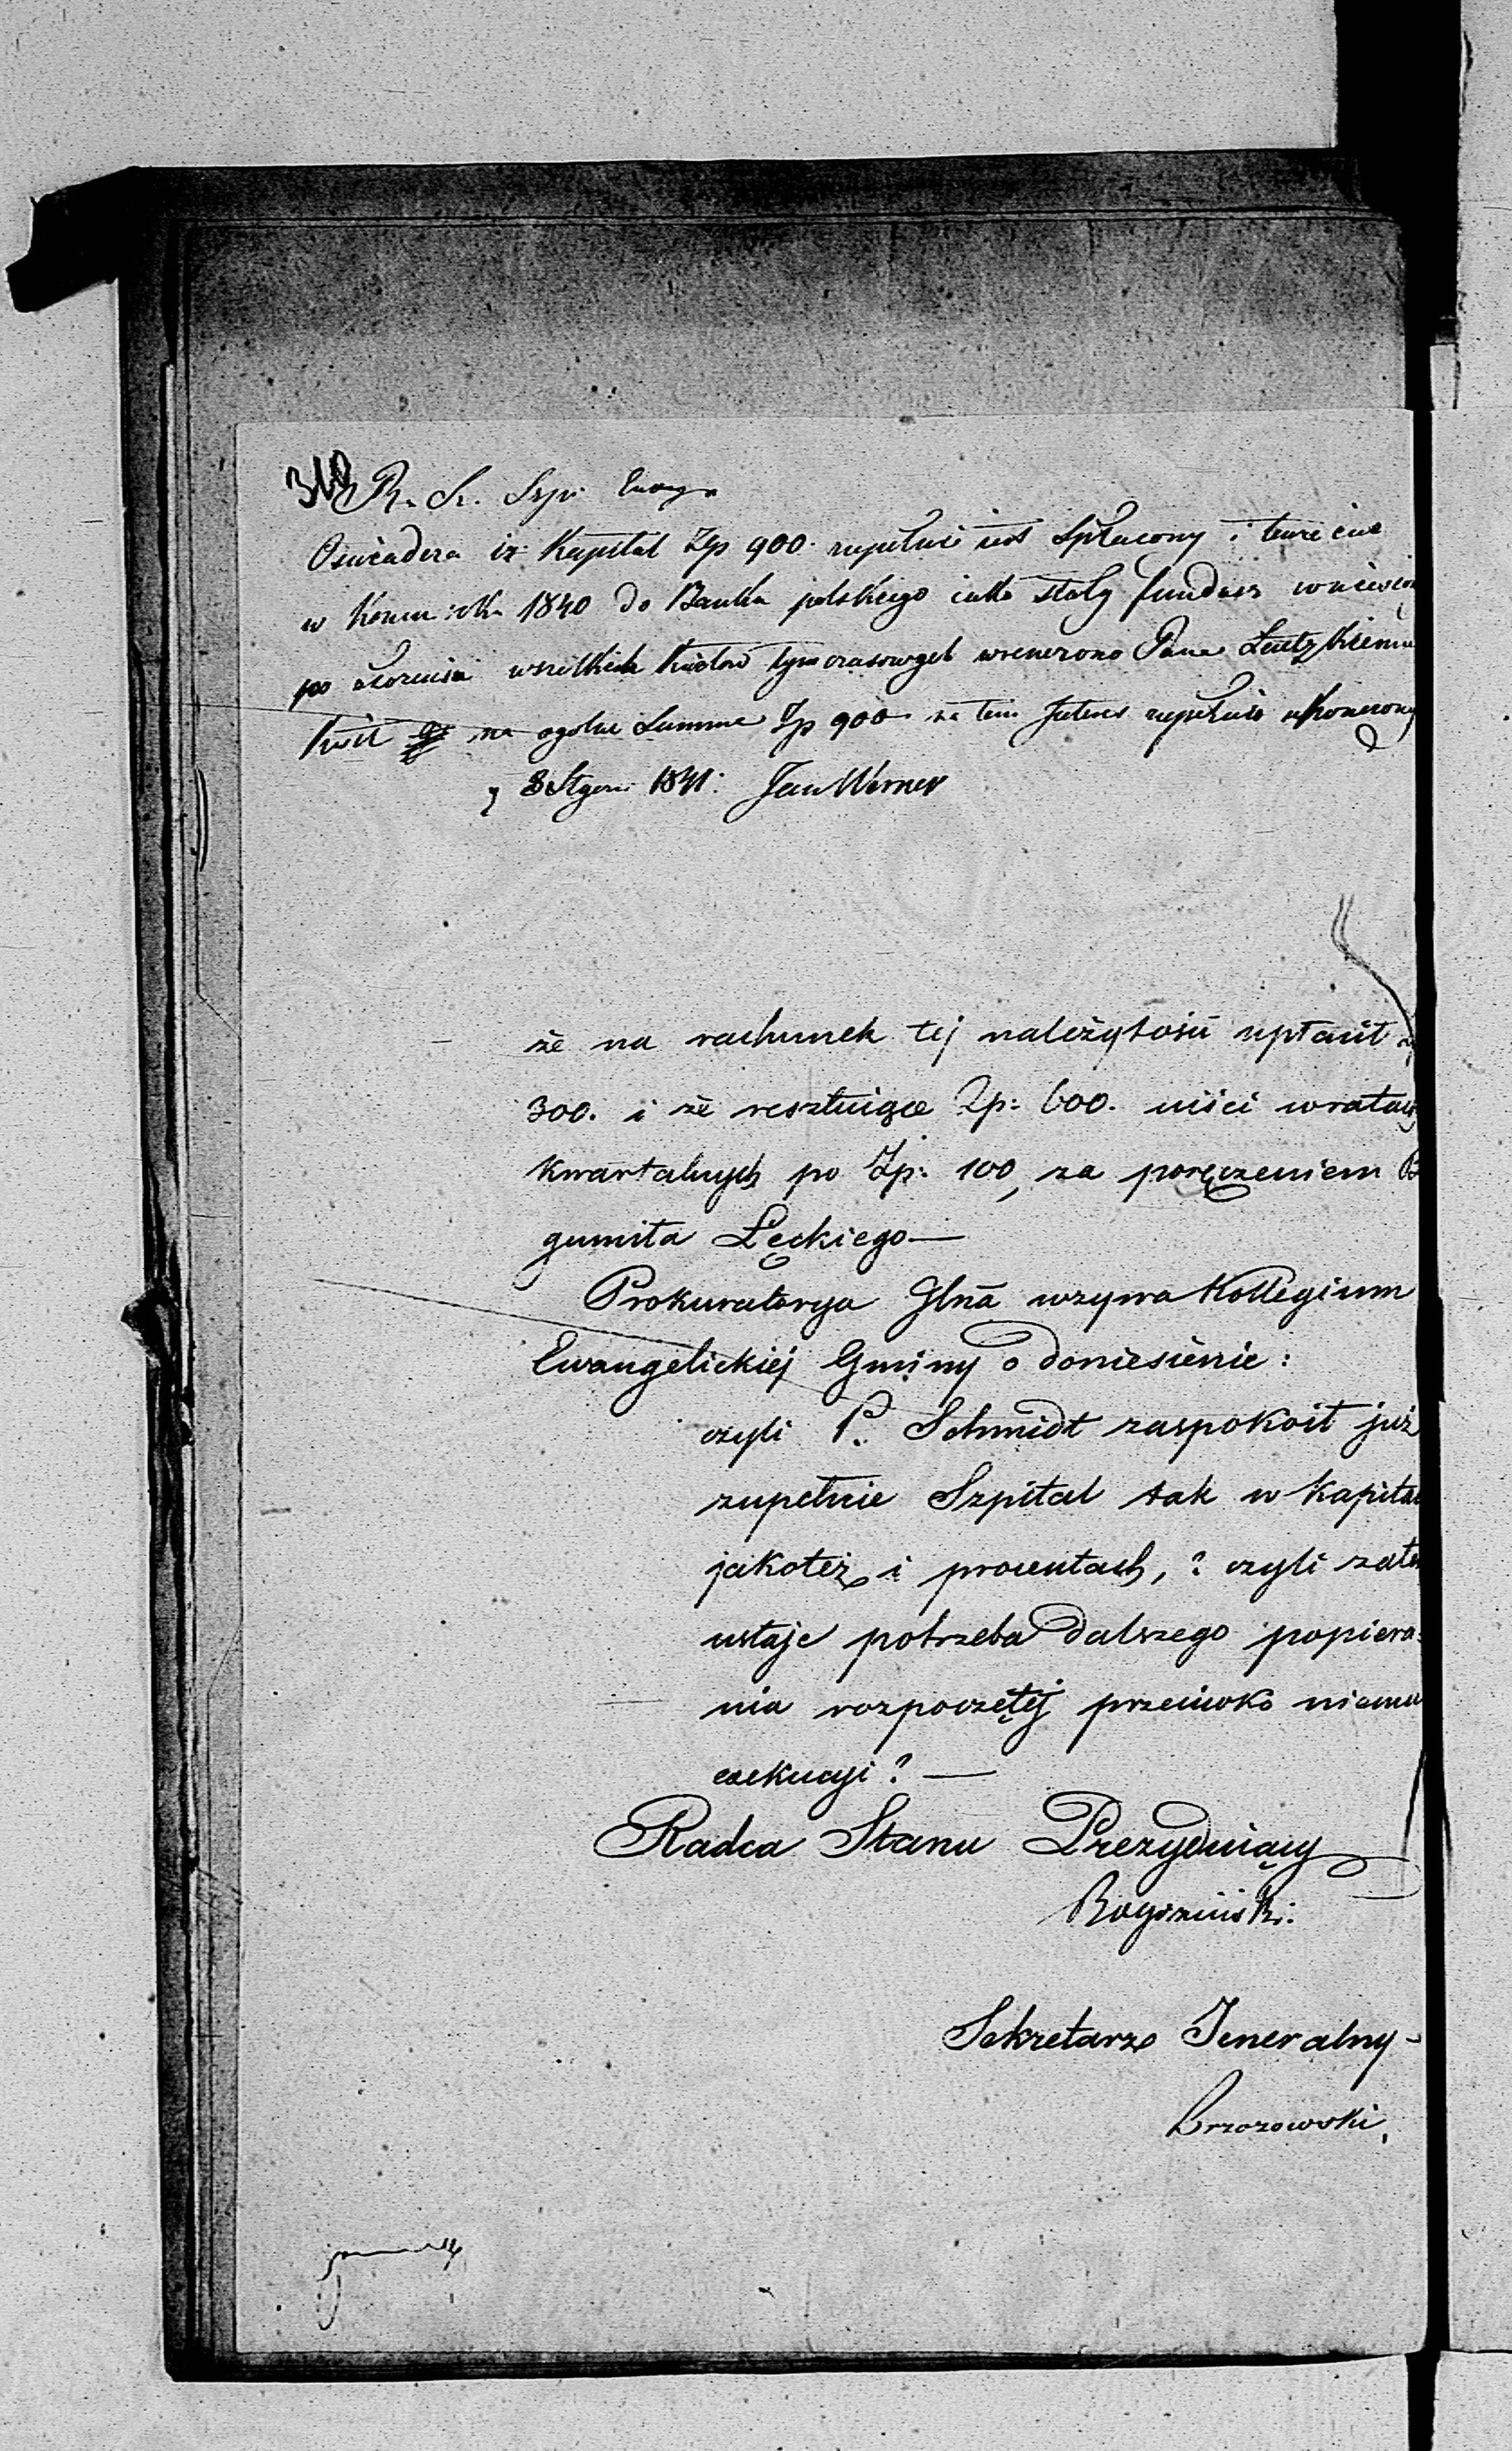 R. S. Szp. Ewang
Oswiadcza iz Kapitał Zp 900. zupełnie iest Spłacony i
w Koncu roku 1840 do Banku polskiego iako stały fundusz wniesion
po złozeniu wszelkich kwitow tymczasowych wręczono Panu
kwit na ogolne Summe Zp 900 za tem Interes zupełnie ukonczony
8 Stycz 1841. Jan Werner
że na rachunek tej należytości upłacił
300. i że resztuiące Zp: 600. uiści w ratach
kwartalnych po Zp: 100, za poręczeniem Bo
gumiła Łęckiego—
Prokuratorya Glna wzywa Kollegium
Ewangelickiej Gminy o doniesienie:
czyli P. Schmidt zaspokoił już
zupełnie Szpital tak w Kapita
jakoteż i procentach, ? czyli zate
ustaje potrzeba dalszego popiera=
nia rozpoczętej przeciwko niemu
exekucyi ? —
Radca Stanu Prezyduiący
Sekretarz Jeneralny
Brzozowski